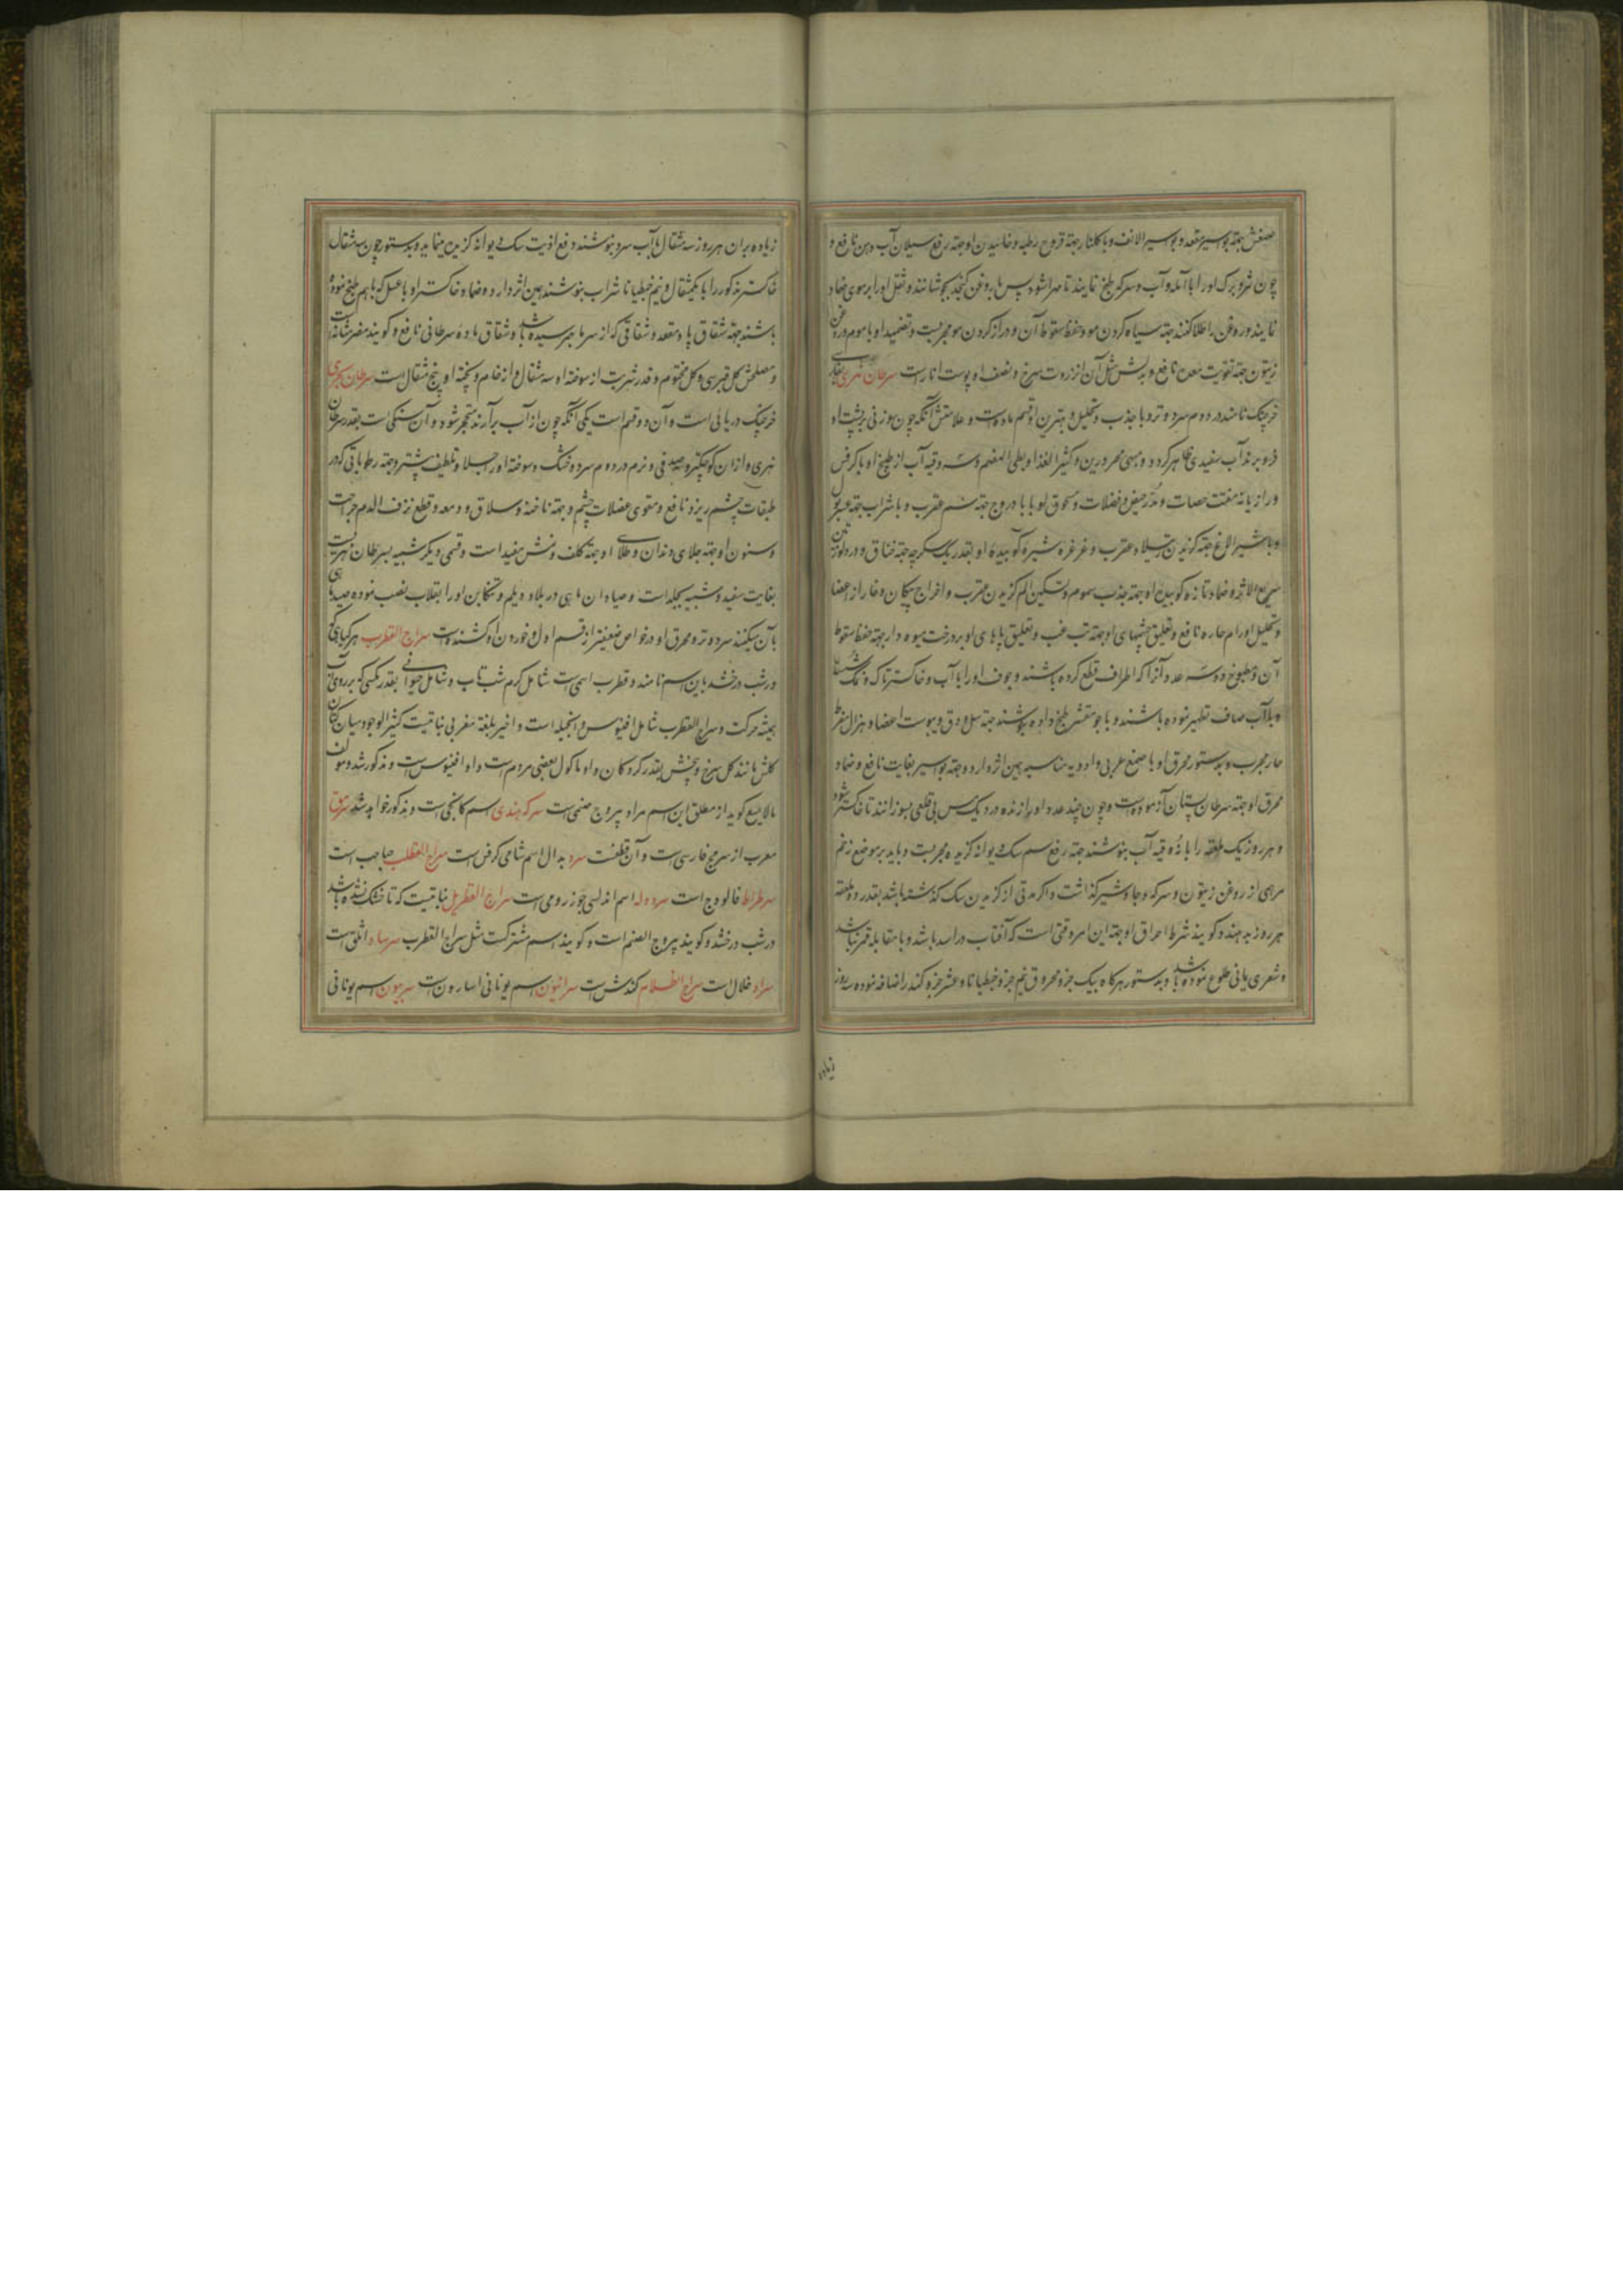 صمغش جهته بواسیر مقعد و بواسیر الانف و با کلنار جهته قروح رطبه و خائیدن او جهته رفع سیلان آب دهن نافع و
چون ثمر و برک اورا با آمله و آب و سرکه طبخ نمایند تا مهرا شود پس با روغن کنجد بجوشانند و ثفل اورا بر موی ضماد
نمایند و روغن را طلا کنند جهته سیاه کردن مو و حفظ سقوط آن و دراز کردن مو مجربست و تضمید او با موم و روغن
زیتون جهته تقویت معده نافع و بدلش مثل آن انزروت سرخ و نصف او پوست انار است سرطان نهری بفارسی
خرچنک نامند در دوم سرد و تر و با جذب و تحلیل و بهترین او قسم ماده است و علامتش آنکه چون سوزنی بر پشت او
فرو برند آب سفیدی ظاهر کردد و مبهی محرورین و کثیر الغذا و بطی الهضم و سه وقیه آب از طبیخ او با کرفس
و رازیانه مفتت حصات و مدر حیض و فضلات و مسحوق او با بادروج جهته سم عقرب و با شراب جهته عسر بول
و با شیر الاغ جهته کزیدن رتیلا و عقرب و غرغره شیره کوبیده او بقدر یک سکرجه جهته خناق و درد لوزتین
سریع الاثر و ضماد تازه کوبیده او جهته جذب سموم و تسکین الم کزیدن عقرب و اخراج پیکان و خار از اعضا
و تحلیل اورام حاره نافع و تعلیق چشمهای او جهته تب غب و تعلیق پاهای او بر درخت میوه دار جهته حفظ سقوط
آن و مطبوخ دو سه عدد آن که اطراف قطع کرده باشند و جوف اورا با آب و خاکستر تاک و نمک شسته
و بآب صاف تطهیر نموده باشند و با جو مقشر طبخ داده بنوشند جهته سل و دق و یبوست اعضا و هزال مفرط
حار مجرب و بدستور محرق او با صمغ عربی و ادویه مناسبه همین اثر دارد و جهته بواسیر بغایت نافع و ضماد
محرق او جهته سرطان پستان آزموده است و چون چند عدد اورا زنده در دیک مس بی قلعی بسوزانند تا خاکستر شود
و هر روز یک ملعقه را با نه وقیه آب بنوشند جهته رفع سم سک دیوانه کزیده مجربست و باید بر موضع زخم
مرهمی از روغن زیتون و سرکه و جاوشیر کذاشت و اکر مدتی از کزیدن سک کذشته باشد بقدر دو ملعقه
هر روز بدهند و کویند شرط احراق او جهته این امر وقتی است که آفتاب در اسد باشد و با مقابله قمر نباشد
و شعری یمانی طلوع نموده باشد و بدستور هرکاه بیک جزو محروق نیم جزو جنطیانا و عشر جزو کندر اضافه نموده سه روز
زیاده
زیاده بر آن هر روز سه مثقال با آب سرد بنوشند دفع اذیت سک دیوانه کزیده مینماید و بدستور چون سه مثقال
خاکستر مذکور را با یکمثقال و نیم جنطیانا شراب بنوشند همین اثر دارد و ضماد خاکستر او با عسل که باهم طبخ نموده
باشند جهته شقاق پا و مقعد و شقاقی که از سرما بهم رسیده باشد و شقاق ماده سرطانی نافع و کویند مضر مثانه است
و مصلحش کل قبرسی و کل مختوم و قدر شربت از سوخته او سه مثقال و از خام و پخته او پنج مثقال است سرطان بحری
خرچنک دریائی است و آن دو قسم است یکی آنکه چون از آب برآرند متحجر شود و آن سنکی است بقدر سرطان
نهری و از ان کوچکتر و صدفی و نرم در دوم سرد و خشک و سوخته اورا جلا و تلطیف بیشتر و جهته رطوباتی که در
طبقات چشم ریزد نافع و مقوی عضلات چشم و جهته ناخنه و سلاق و دمعه و قطع نزف الدم جراحت
و سنون او جهته جلای دندان و طلای او جهته کلف و نمش مفید است و قسمی دیکر شبیه بسرطان نهریست
بغایت سفید و شبیه بجلد است و صیادان ماهی در بلاد دیلم و تنکابن اورا بقلاب نصب نموده صید ماهی
بآن میکنند سرد و تر و محرق او در خواص ضعیفتر از قسم اول و خوردن او کشنده است سراج القطرب هر کیاهی که
در شب درخشد باین اسم نامند و قطرب اسمی است شامل کرم شب تاب و شامل حیوانی بقدر مکسی که بر روی آب
همیشه حرکت و سراج القطرب شامل افینوس و انجیله است و اخیر بلغة مغربی نباتیست کثیر الوجود میان کتان
کلش مانند کل سرخ و بیخش بقدر کردکان و او ماکول بعضی مردم است و او افینوس است و مذکور شد و مولف
مالایسع کوید از مطلق این اسم مراد یبروح صنمی است سرکه هندی اسم کانجی است و مذکور خواهد شد سرمق
معرب از سرمج فارسی است و آن قطفست سرد بدال اسم شامی کرفس است سراج القطلب حباحب است
سرطراط فالودج است سرد وله اسم اندلسی جوز رومی است سراج القطریل نباتیست که تا خشک نشده باشد
در شب درخشد و کویند یبروح الصنم است و کویند اسم مشترکست مثل سراج القطرب سرساد اثلق است
سراد خلال است سراج الظلام کندش است سرانیون اسم یونانی اسارون است سربیون اسم یونانی